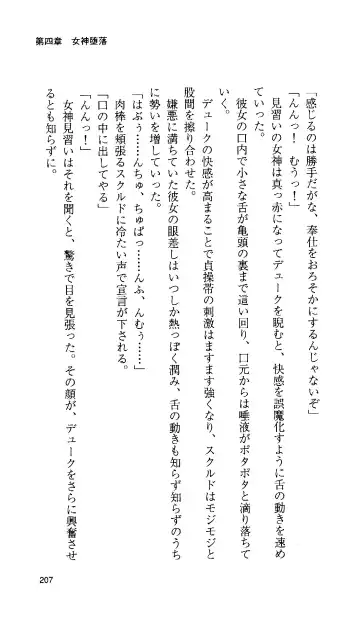 第四章　女神堕落
「感じるのは勝手だがな、奉仕をおろそかにするんじゃないぞ」
「んんっ！　むうっ！」
見習いの女神は真っ赤になってデュークを睨むと、快感を誤魔化すように舌の動きを速め
ていった。
彼女の口内で小さな舌が亀頭の裏まで這い回り、口元からは唾液がポタポタと滴り落ちて
いく。
デュークの快感が高まることで貞操帯の刺激はますます強くなり、スクルドはモジモジと
股間を擦り合わせた。
嫌悪に満ちていた彼女の眼差しはいつしか熱っぽく潤み、舌の動きも知らず知らずのうち
に勢いを増していった。
「はぶぅ……んちゅ、ちゅぱっ……んふ、んむぅ……」
肉棒を頬張るスクルドに冷たい声で宣言が下される。
「口の中に出してやる」
「んんっ！」
女神見習いはそれを聞くと、驚きで目を見張った。その顔が、デュークをさらに興奮させ
るとも知らずに。
207